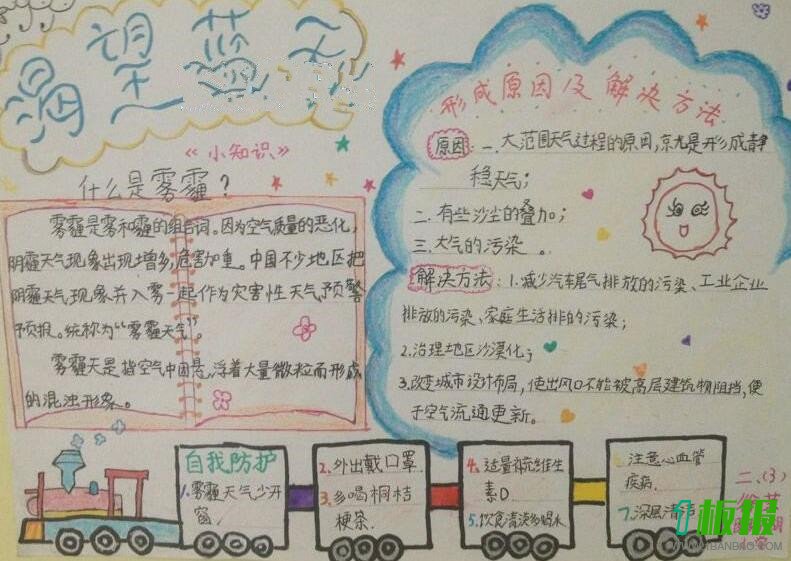 渴望蓝天
《小知识》
什么是雾霾？
雾霾是雾和霾的组合词。因为空气质量的恶化，
阴霾天气现象出现增多，危害加重。中国不少地区把
阴霾天气现象并入雾一起作为灾害性天气预警
预报。统称为“雾霾天气”。
雾霾天是指空气中因悬浮着大量微粒而形成
的混浊形象。
形成原因及解决方法
原因：一、大范围天气过程的原因，京尤是形成静
稳天气；
二、有些沙尘的叠加；
三、大气的污染。
解决方法：1.减少汽车尾气排放的污染、工业企业
排放的污染、家庭生活排的污染；
2.治理地区沙漠化；
3.改变城市设计布局，使出风口不能被高层建筑物阻挡，便
于空气流通更新。
自我防护
1.雾霾天气少开
窗.
2.外出戴口罩.
3.多喝桐桔
梗茶.
4.适量补充维生
素D
5.饮食清淡多喝水
注意心血管
疾病.
7.深层清
二、(3)
板报